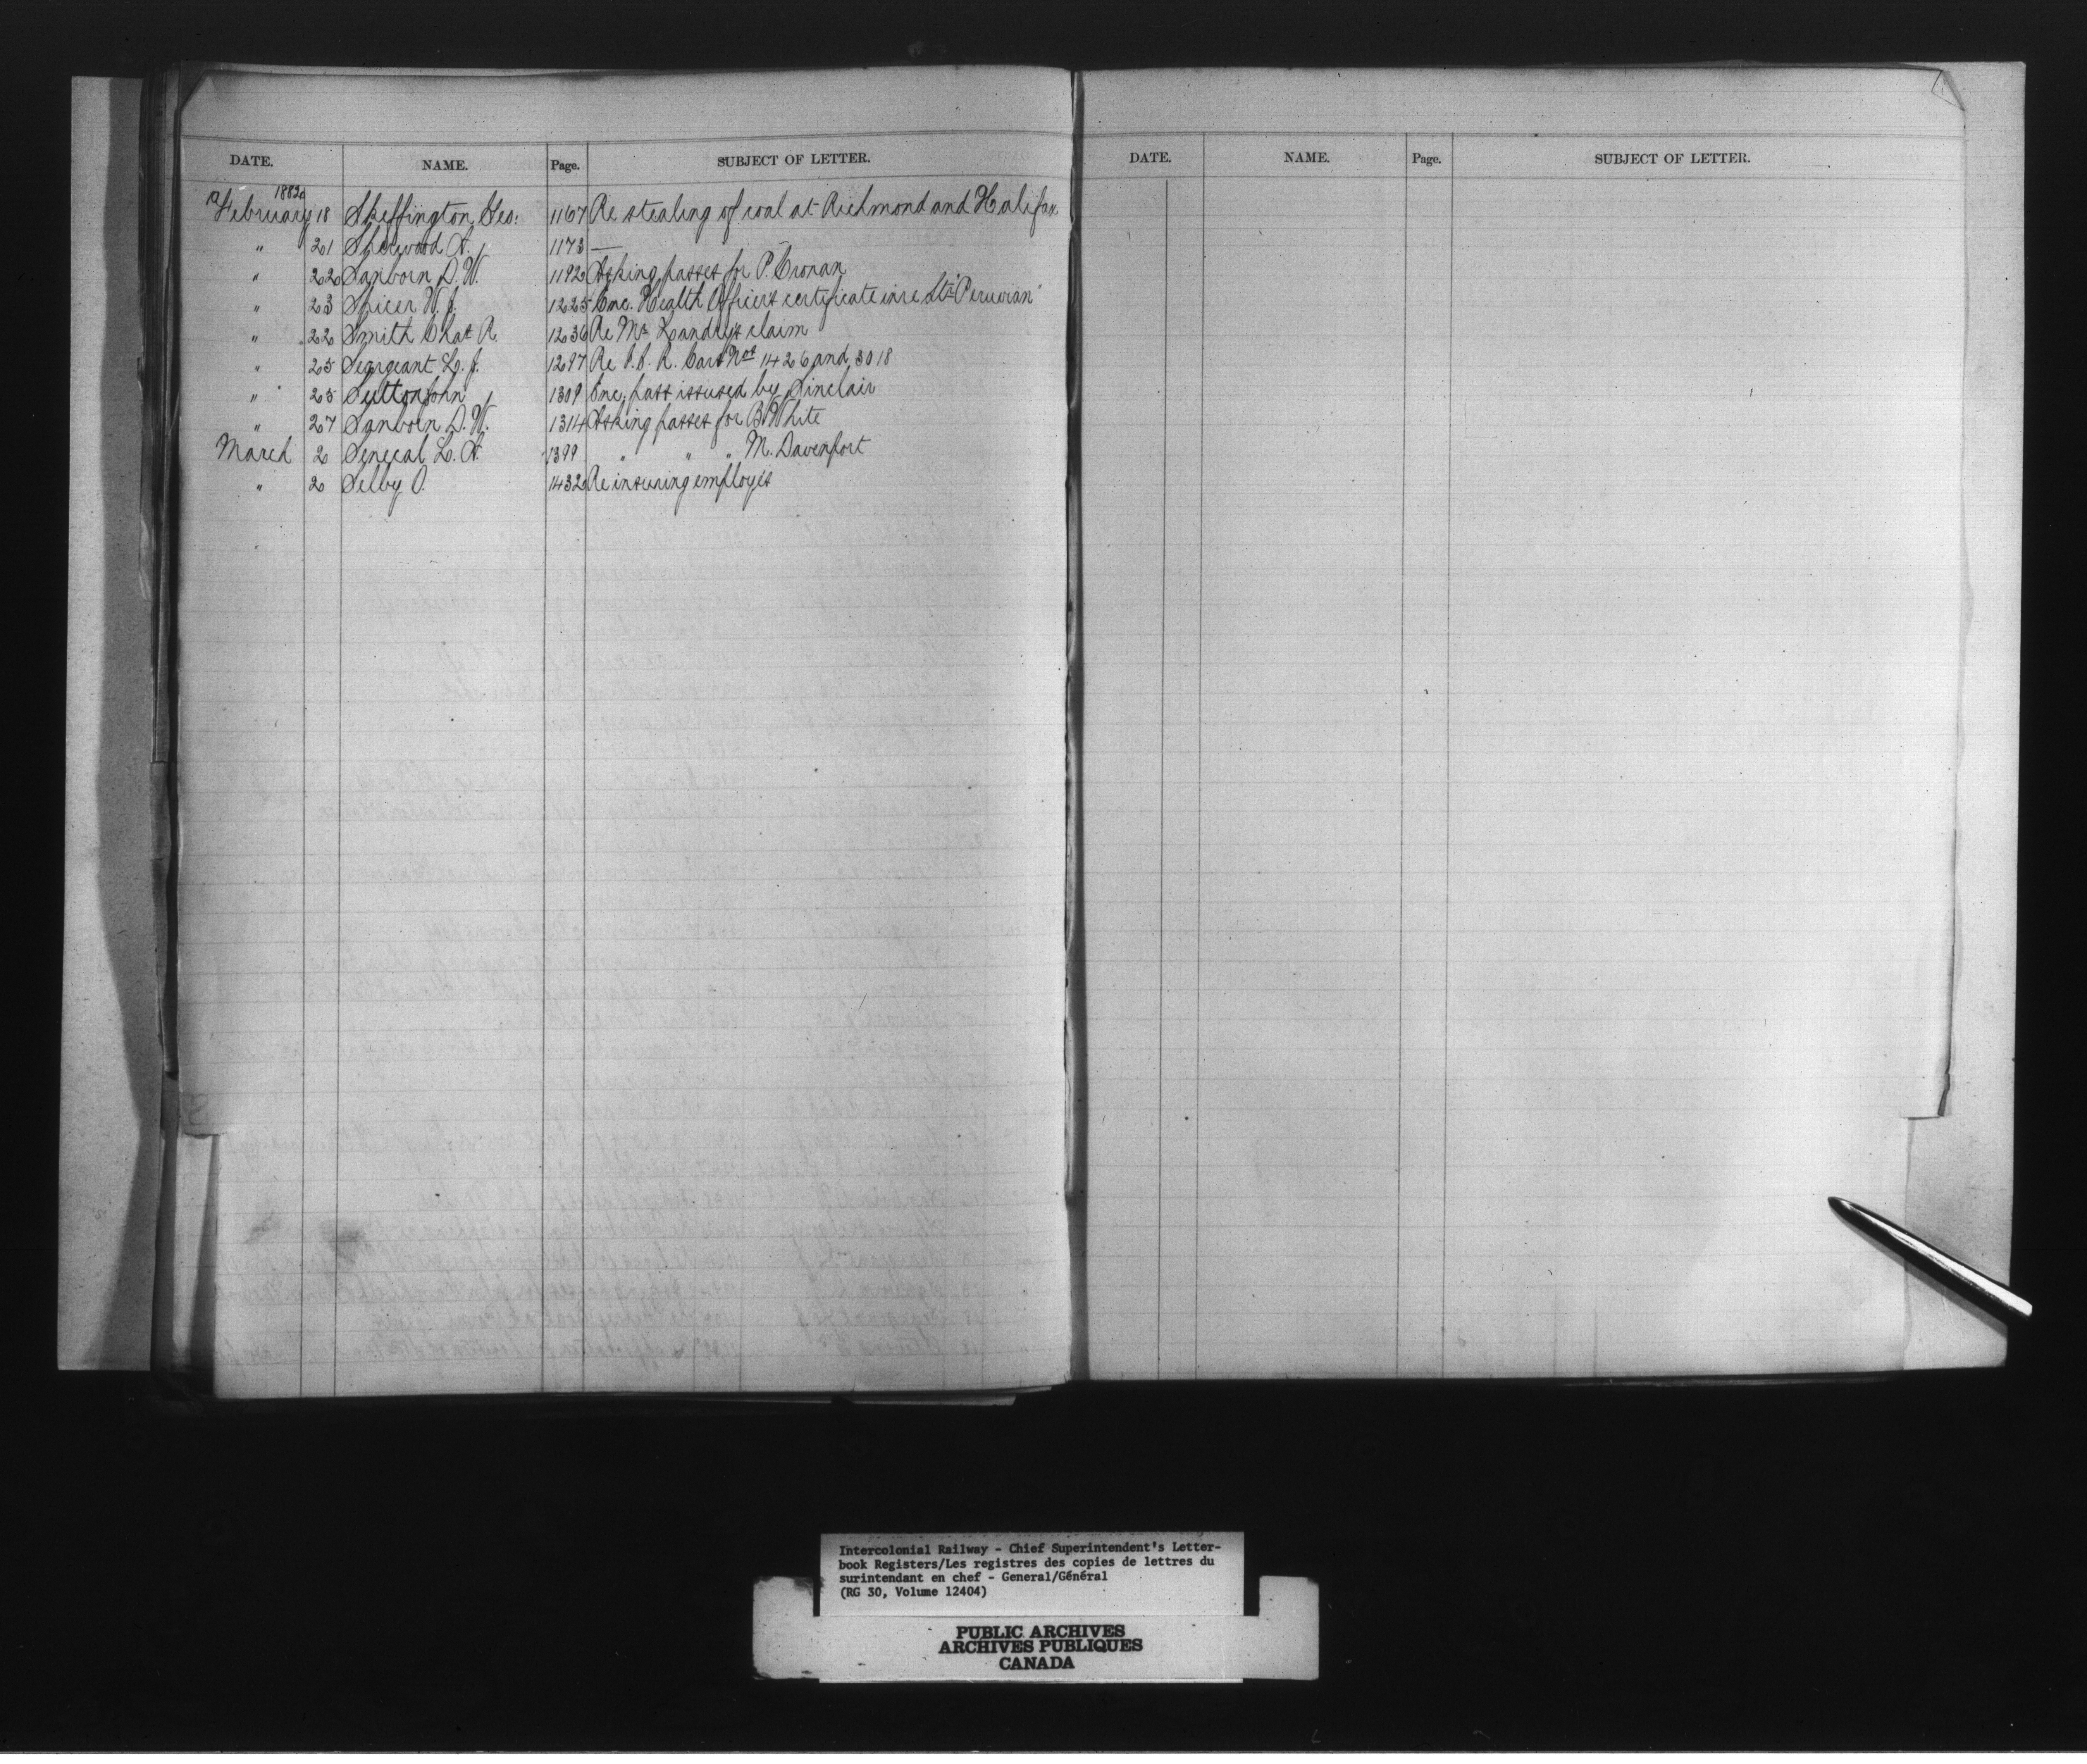 DATE. NAME. Page. SUBJECT OF LETTER.
1882
February 18 Skeffington Geo: 1167 Re stealing of coal at Richmond and Halifax
" 21 Sherwood A. 1173 —
" 22 Sanborn D. W. 1192 Asking passes for P. Cronan
" 23 Spicer W. J. 1225 Enc. Health Officers certificate in re Str "Peruvian"
" 22 Smith Chas R. 1236 Re Mr Landrys claim
" 25 Seargeant L. J. 1297 Re I. C. R. Cars Nos 1426 and 3018
" 25 Sutton John 1309 Enc. pass issused by Sinclair
" 27 Sanborn D. W. 1314 Asking passes for B. White
March 2 Senecal L. A. 1399 " " " M. Davenport
" 2 Selby O. 1432 Re insuring employés
DATE. NAME. Page. SUBJECT OF LETTER.
Intercolonial Railway - Chief Superintendent's Letter-
book Registers/Les registres des copies de lettres du
surintendant en chef - General/Général
(RG 30, Volume 12404)
PUBLIC ARCHIVES
ARCHIVES PUBLIQUES
CANADA